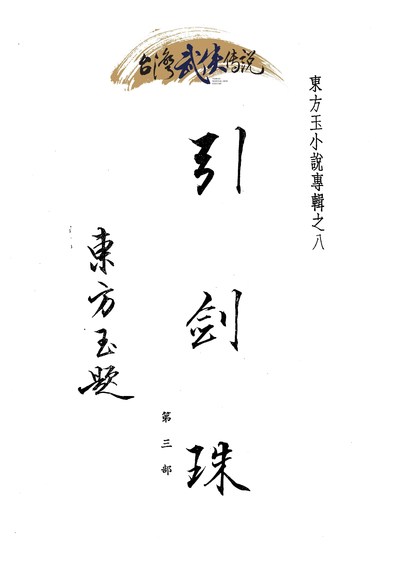 台灣武侠传説
東方玉小說專輯之八
引劍珠
第三部
東方玉題